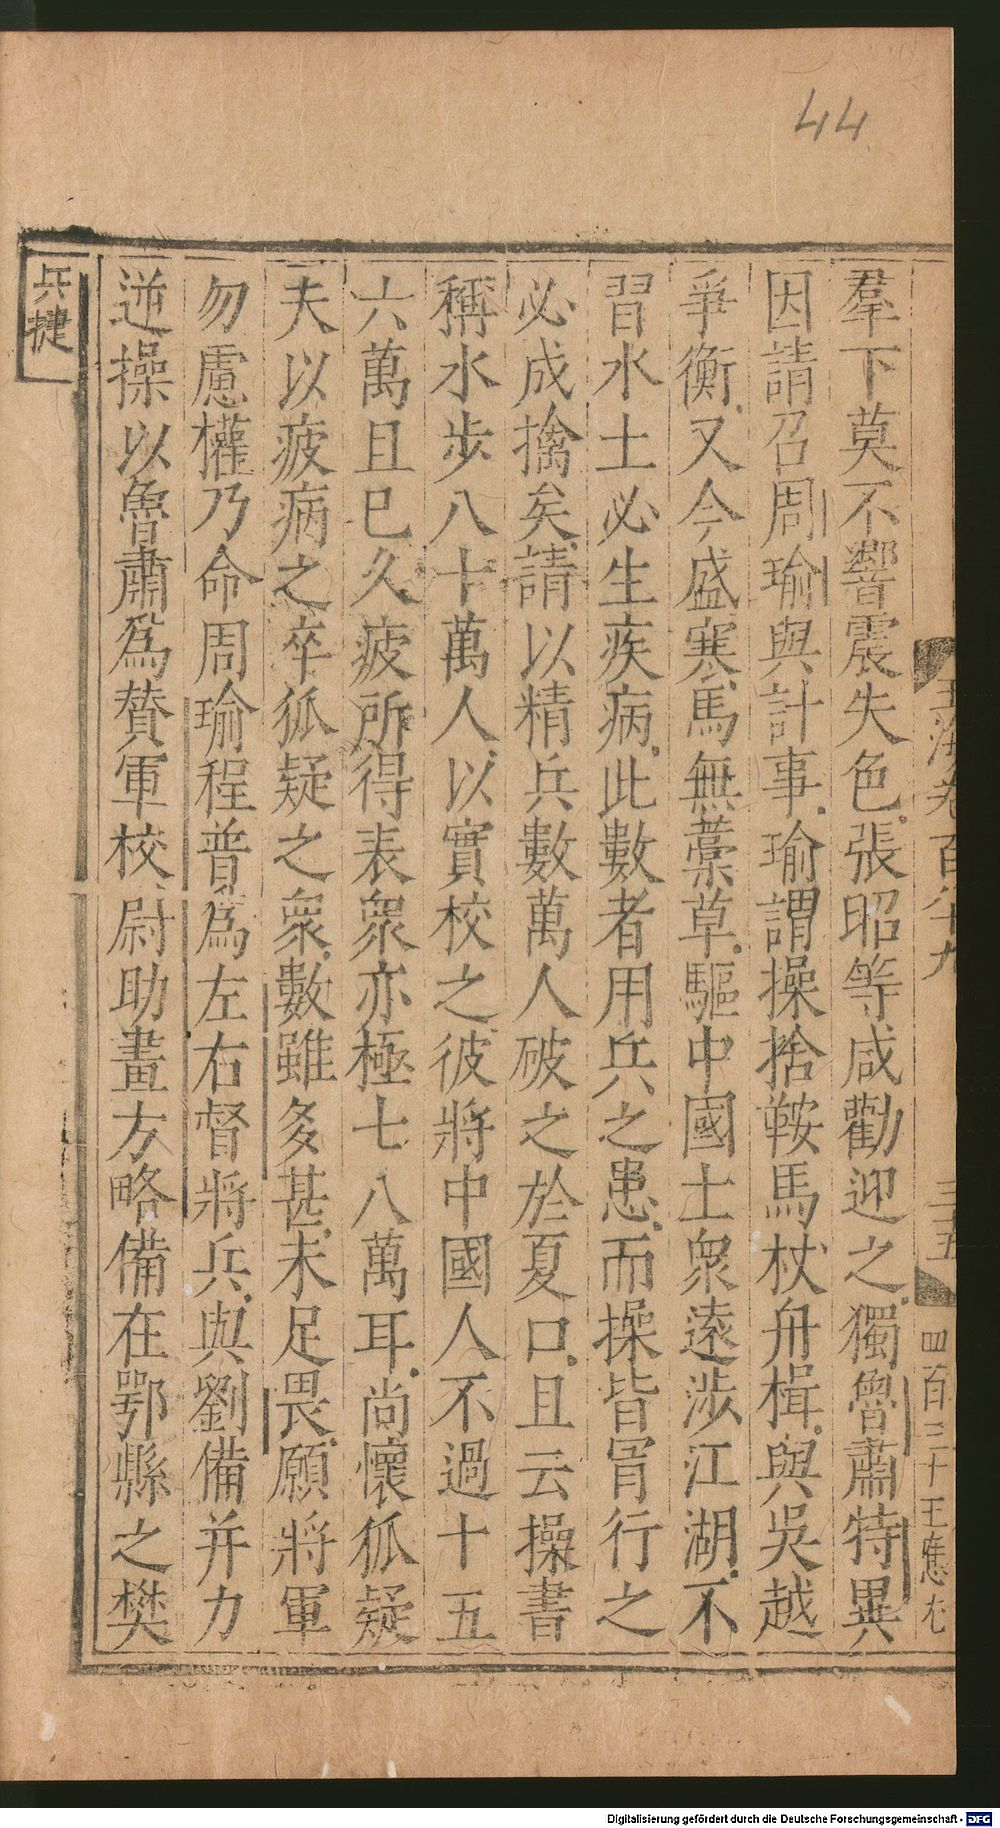 44
玉海卷百八十九
三五
四百三十王應
羣下莫不響震失色張昭等咸勸迎之獨魯肅特異
因請召周瑜與計事瑜謂操捨鞍馬杖舟楫與吳越
爭衡又今盛寒馬無藁草驅中國士衆遠涉江湖不
習水土必生疾病此數者用兵之患而操皆冒行之
必成擒矣請以精兵數萬人破之於夏口且云操書
稱水步八十萬人以實校之彼將中國人不過十五
六萬且已久疲所得表衆亦極七八萬耳尚懷狐疑
夫以疲病之卒狐疑之衆數雖多甚未足畏願將軍
勿慮權乃命周瑜程普爲左右督將兵與劉備并力
逆操以魯肅爲賛軍校尉助畫方略備在鄂縣之樊
兵捷
Digitalisierung gefördert durch die Deutsche Forschungsgemeinschaft - DFG